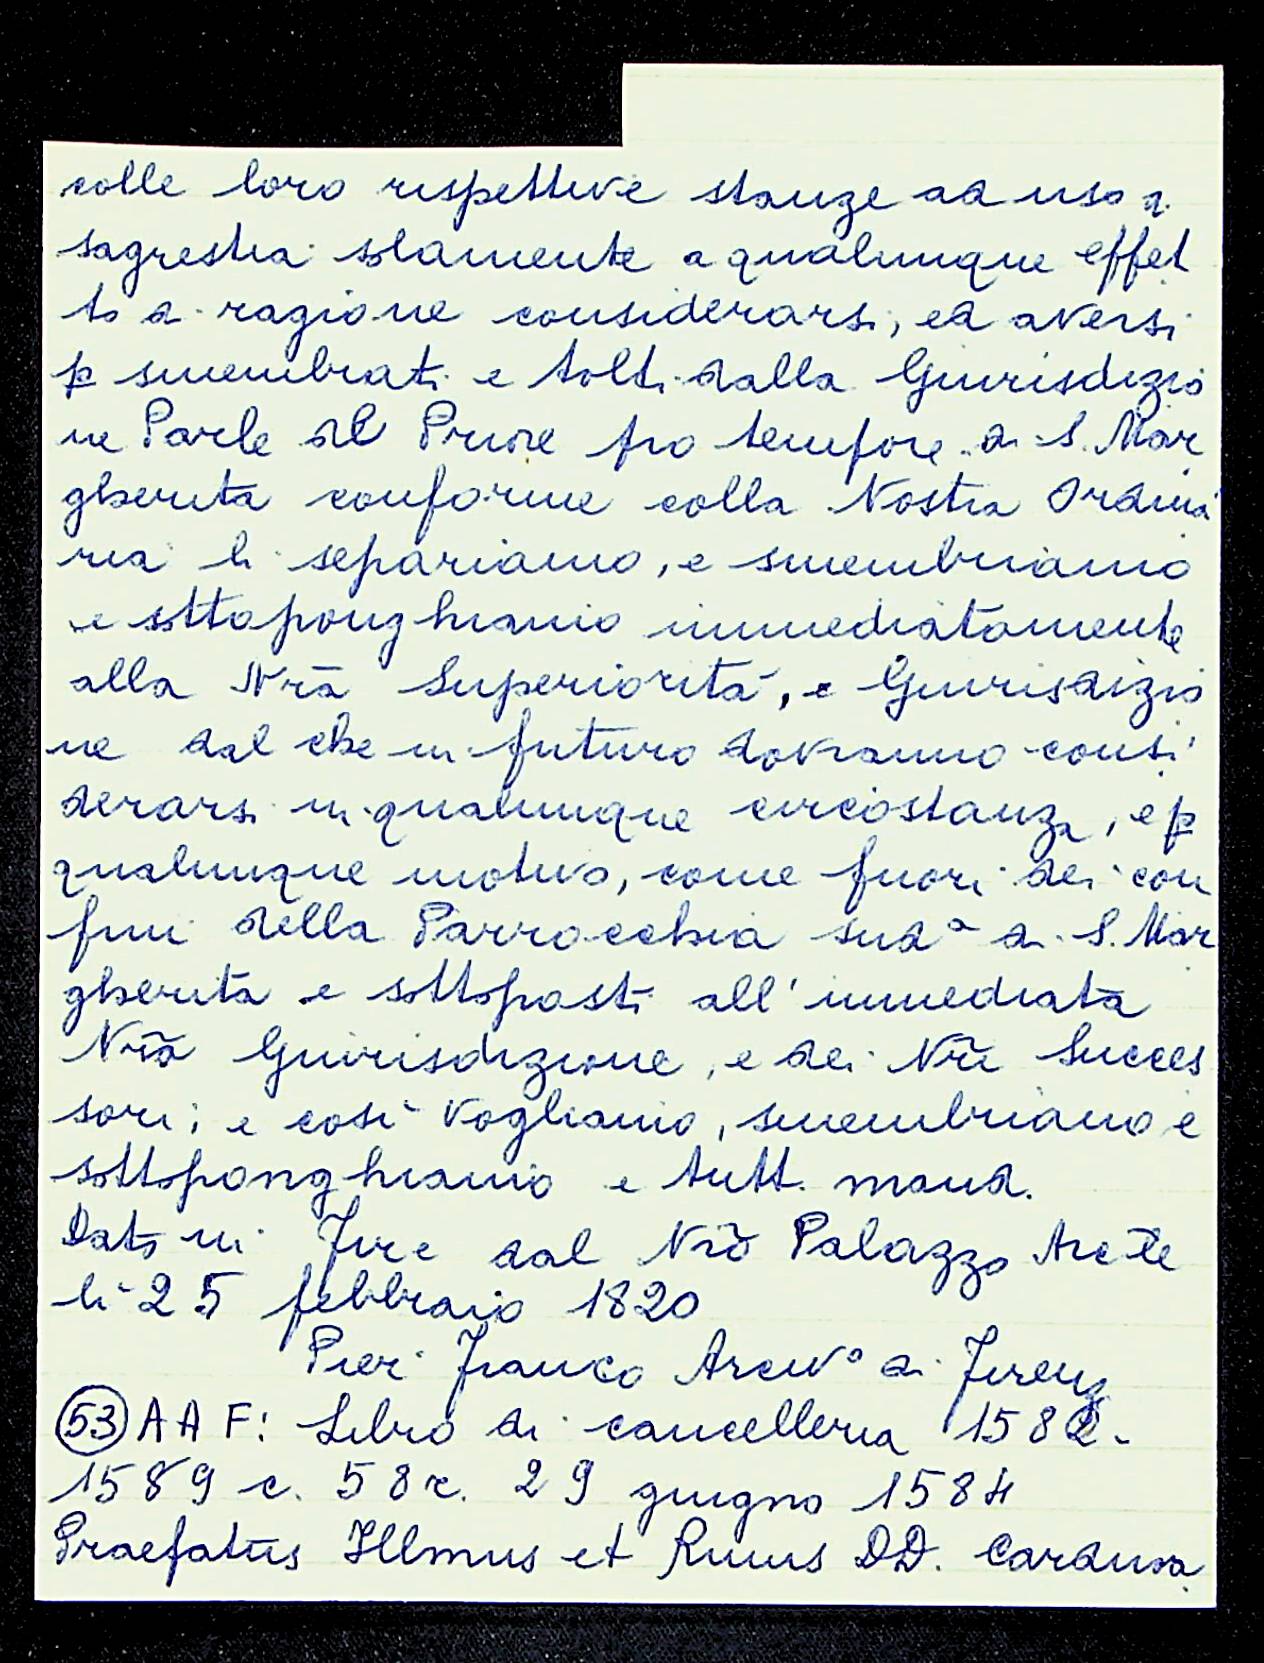 colle loro respettive stanze ad uso di
sagrestia solamente a qualunque effet
to di ragione considerarsi, ed aversi
p smembrati e tolti dalla Giurisdizio
ne Parle del Priore pro tempore di S. Mar
gherita conforme colla Nostra Ordina
ria li separiamo, e smembriamo
e sottoponghiamo immediatamente
alla Nrā Superiorità, e Giurisdizio
ne dal che in futuro dovranno consi
derarsi in qualunque circostanza, e p
qualunque motivo, come fuori dei con
fini della Parrocchia sudª di S. Mar
gherita e sottoposti all'immediata
Nrā Giurisdizione, e dei Nrī Succes
sori; e così vogliamo, smembriamo e
sottoponghiamo e tutt. mand.
Dato in Fire dal Nrō Palazzo
li 25 febbraio 1820
Pier Franco Arcivº di Firenz
(53) A A F: Libro di cancelleria 1582-
1589 c. 58r. 29 giugno 1584
Praefatus Illmus et Rmus DD. Cardina